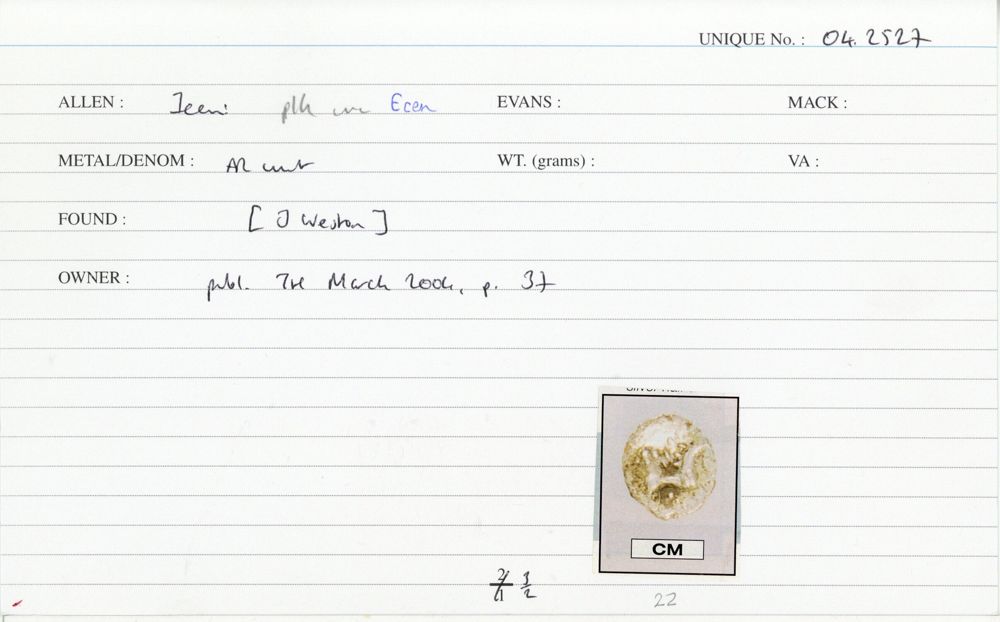 UNIQUE No. : 04.2527
ALLEN : Iceni Ecen EVANS : MACK :
METAL/DENOM : AR unit WT. (grams) : VA :
FOUND : [ J Weston ]
OWNER : publ. TH March 2004, p. 37
CM
22